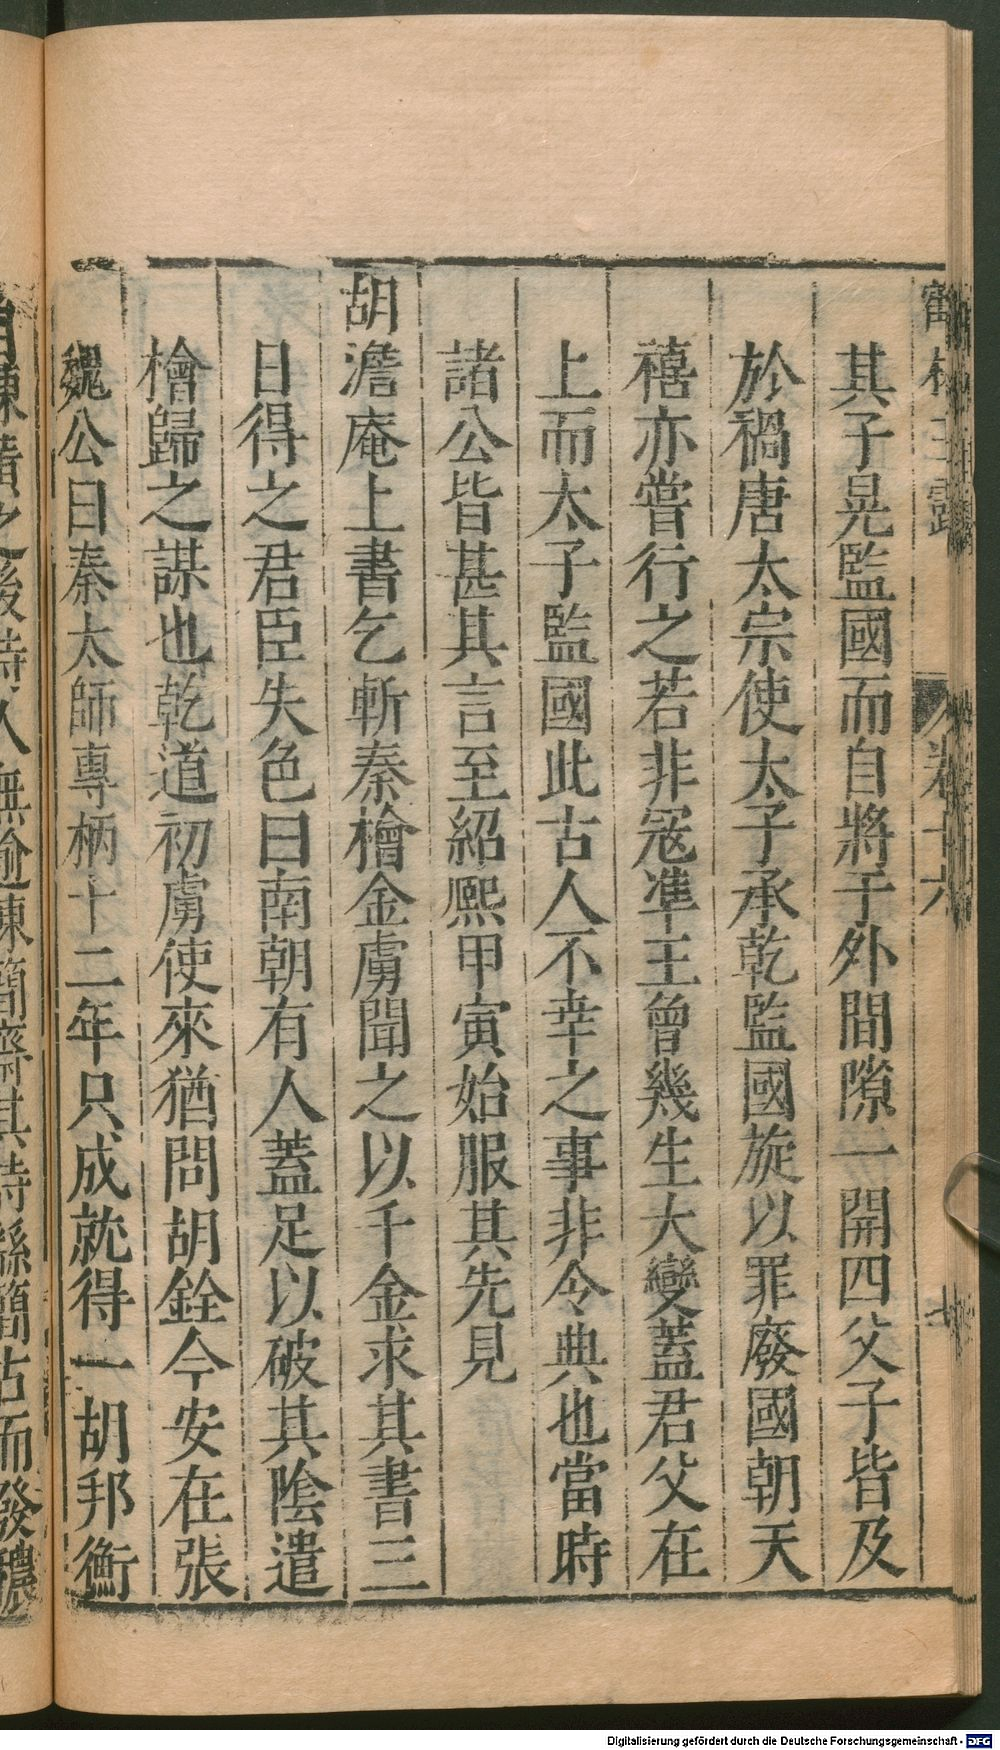 鶴林玉露 卷十六
其子晃監國而自將于外間隙一開四父子皆及
於禍唐太宗使太子承乾監國旋以罪廢國朝天
禧亦嘗行之若非寇凖王曾幾生大變蓋君父在
上而太子監國此古人不幸之事非令典也當時
諸公皆甚其言至紹熙甲寅始服其先見
胡澹庵上書乞斬秦檜金虜聞之以千金求其書三
日得之君臣失色曰南朝有人蓋足以破其陰遣
檜歸之謀也乾道初虜使來猶問胡銓今安在張
魏公曰秦太師專柄十二年只成就得一胡邦衡
之後詩人無逾陳簡齋其詩繇簡古而發穠
Digitalisierung gefördert durch die Deutsche Forschungsgemeinschaft - DFG